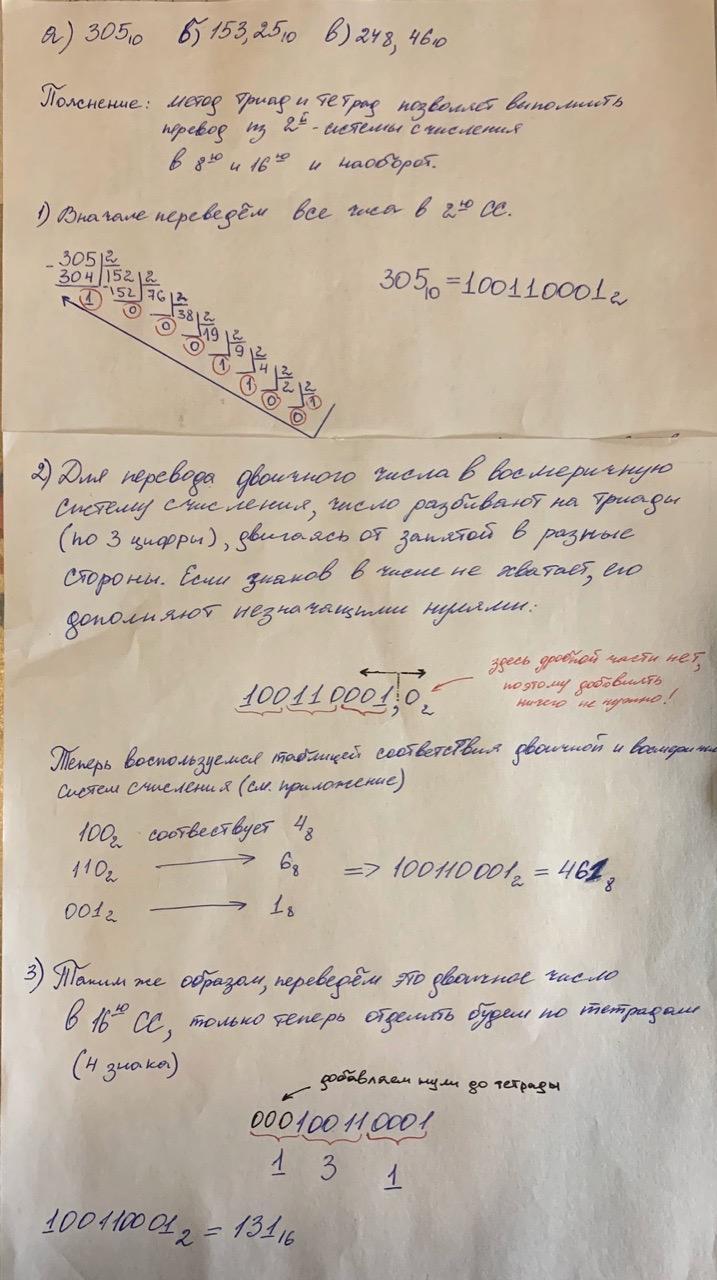 а) 305₁₀ б) 153,25₁₀ в) 248,46₁₀
Пояснение: метод триад и тетрад позволяет выполнить
перевод из 2ᵒⁱ - системы счисления
в 8ʸᵘ и 16ʸᵘ и наоборот.
1) Вначале переведём все числа в 2ʸᵘ СС.
-305|2
304|152|2
1 -152|76|2
0 38|2
0 19|2
0 9|2
1 4|2
1 2|2
0 1
0
305₁₀ = 100110001₂
2) Для перевода двоичного числа в восмеричную
систему счисления, число разбивают на триады
(по 3 цифры), двигаясь от запятой в разные
стороны. Если знаков в числе не хватает, его
дополняют незначащими нулями:
100110001,0₂
здесь дробной части нет,
поэтому добавлять
ничего не нужно!
Теперь воспользуемся таблицей соответствия двоичной и
систем счисления (см. приложение)
100₂ соотвествует 4₈
110₂ → 6₈
001₂ → 1₈
=> 100110001₂ = 461₈
3) Таким же образом, переведём это двоичное число
в 16ʸᵘ СС, только теперь отделять будем по тетрадам
(4 знака)
добавляем нули до тетрады
000100110001
1 3 1
100110001₂ = 131₁₆